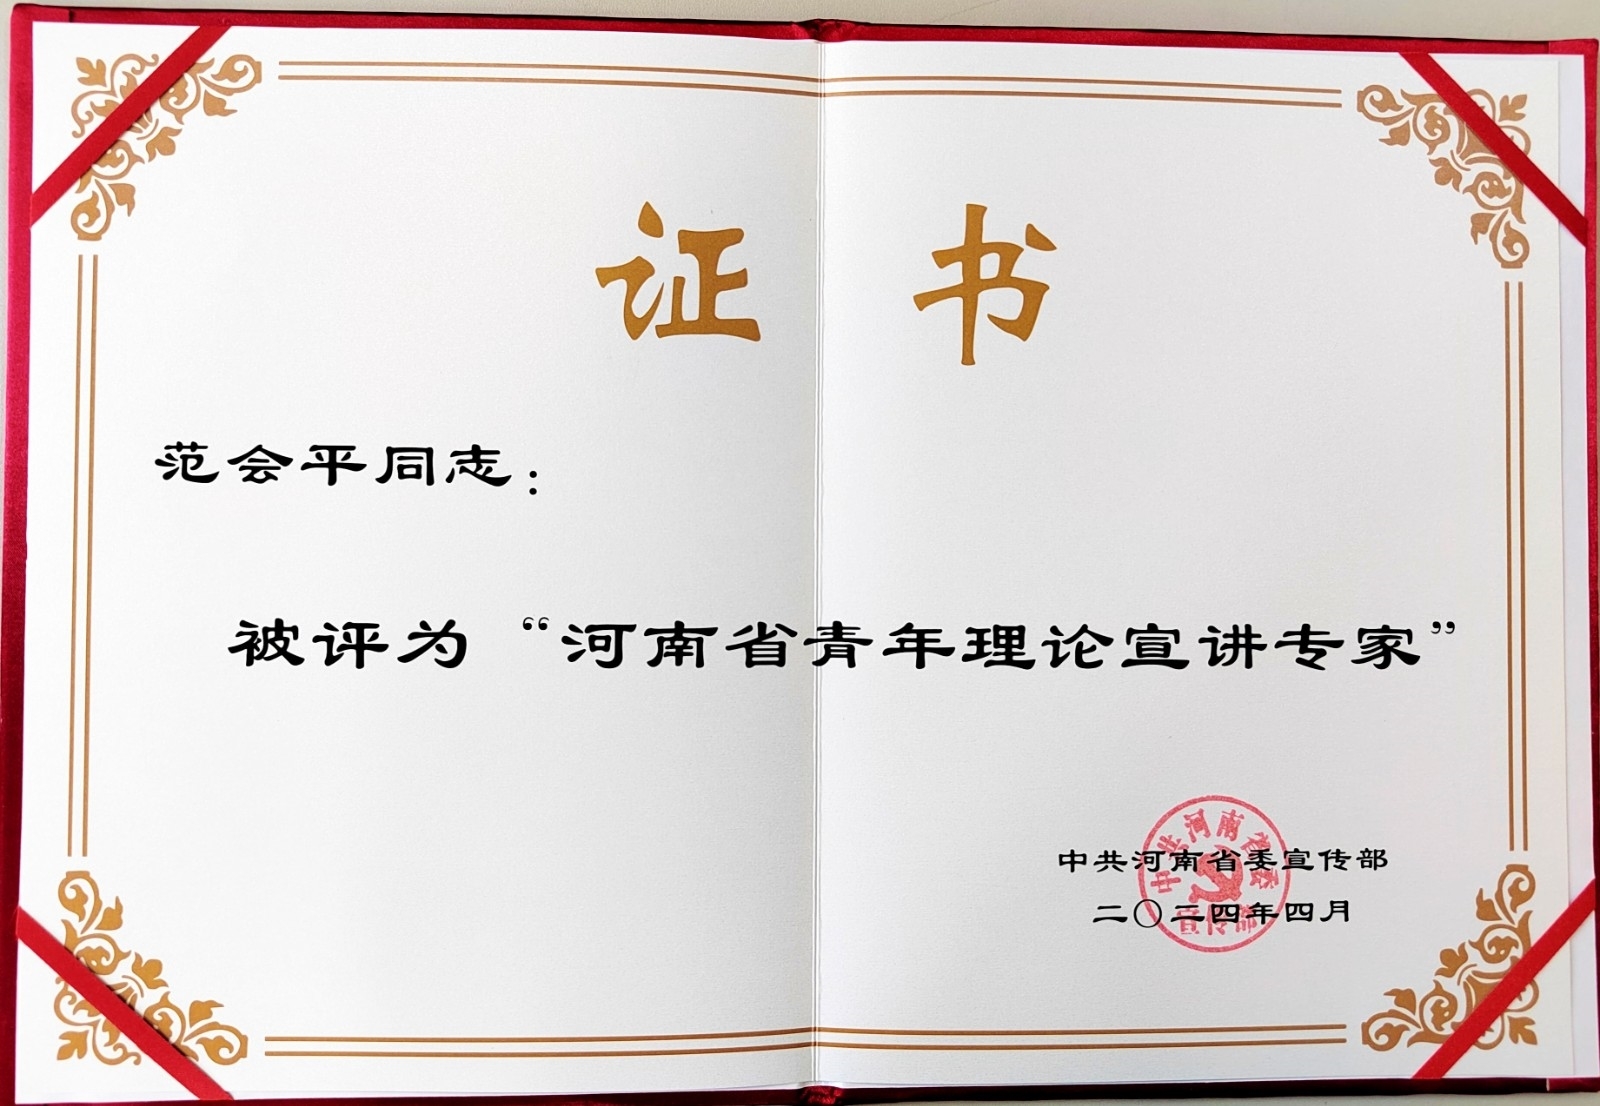 证书
范会平同志：
被评为“河南省青年理论宣讲专家”
中共河南省委宣传部
二〇二四年四月
中共河南省委
宣传部